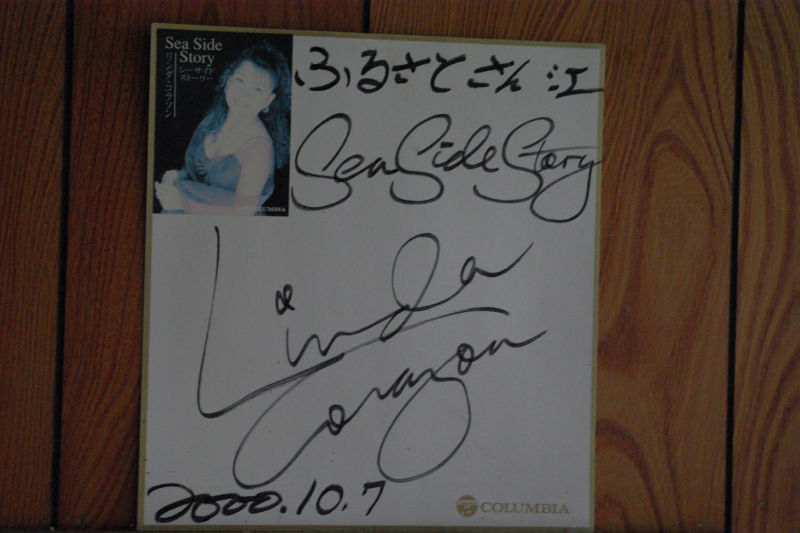 Sea Side
Story
シーサイド
ストーリー
リンダ・コラソン
COLUMBIA
ふるさとさん江
Sea Side Story
Linda
Corazon
2000.10.7
COLUMBIA